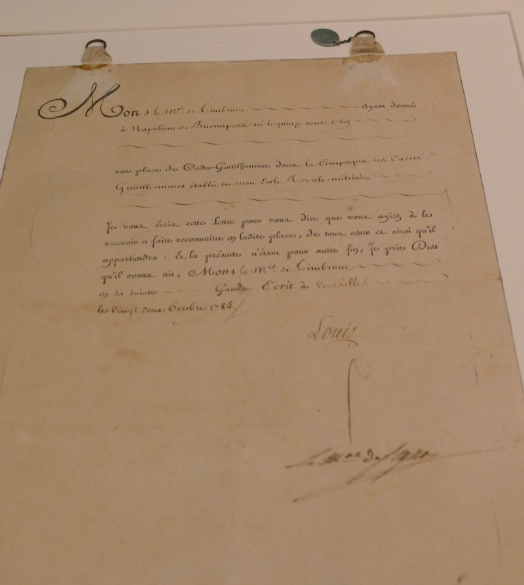 Mons. le M.is de Timbrune ayant donné
à Napoléone de Buonaparte né le quinze aoust 1769
une place de Cadet-Gentilhomme dans la Compagnie des Cadets
Gentilshommes établie en mon École Royale militaire
Je vous écris cette Lettre pour vous dire que vous ayiez à le
recevoir et faire reconnoître en ladite place, de tous ceux et ainsi qu'il
appartiendra: Et la présente n'étant pour autre fin, Je prie Dieu
qu'il vous ait, Mons. le M.is de Timbrune
en sa sainte Garde. Écrit à Versailles
les vingt deux Octobre 1784
Louis
Le M.al de Ségur